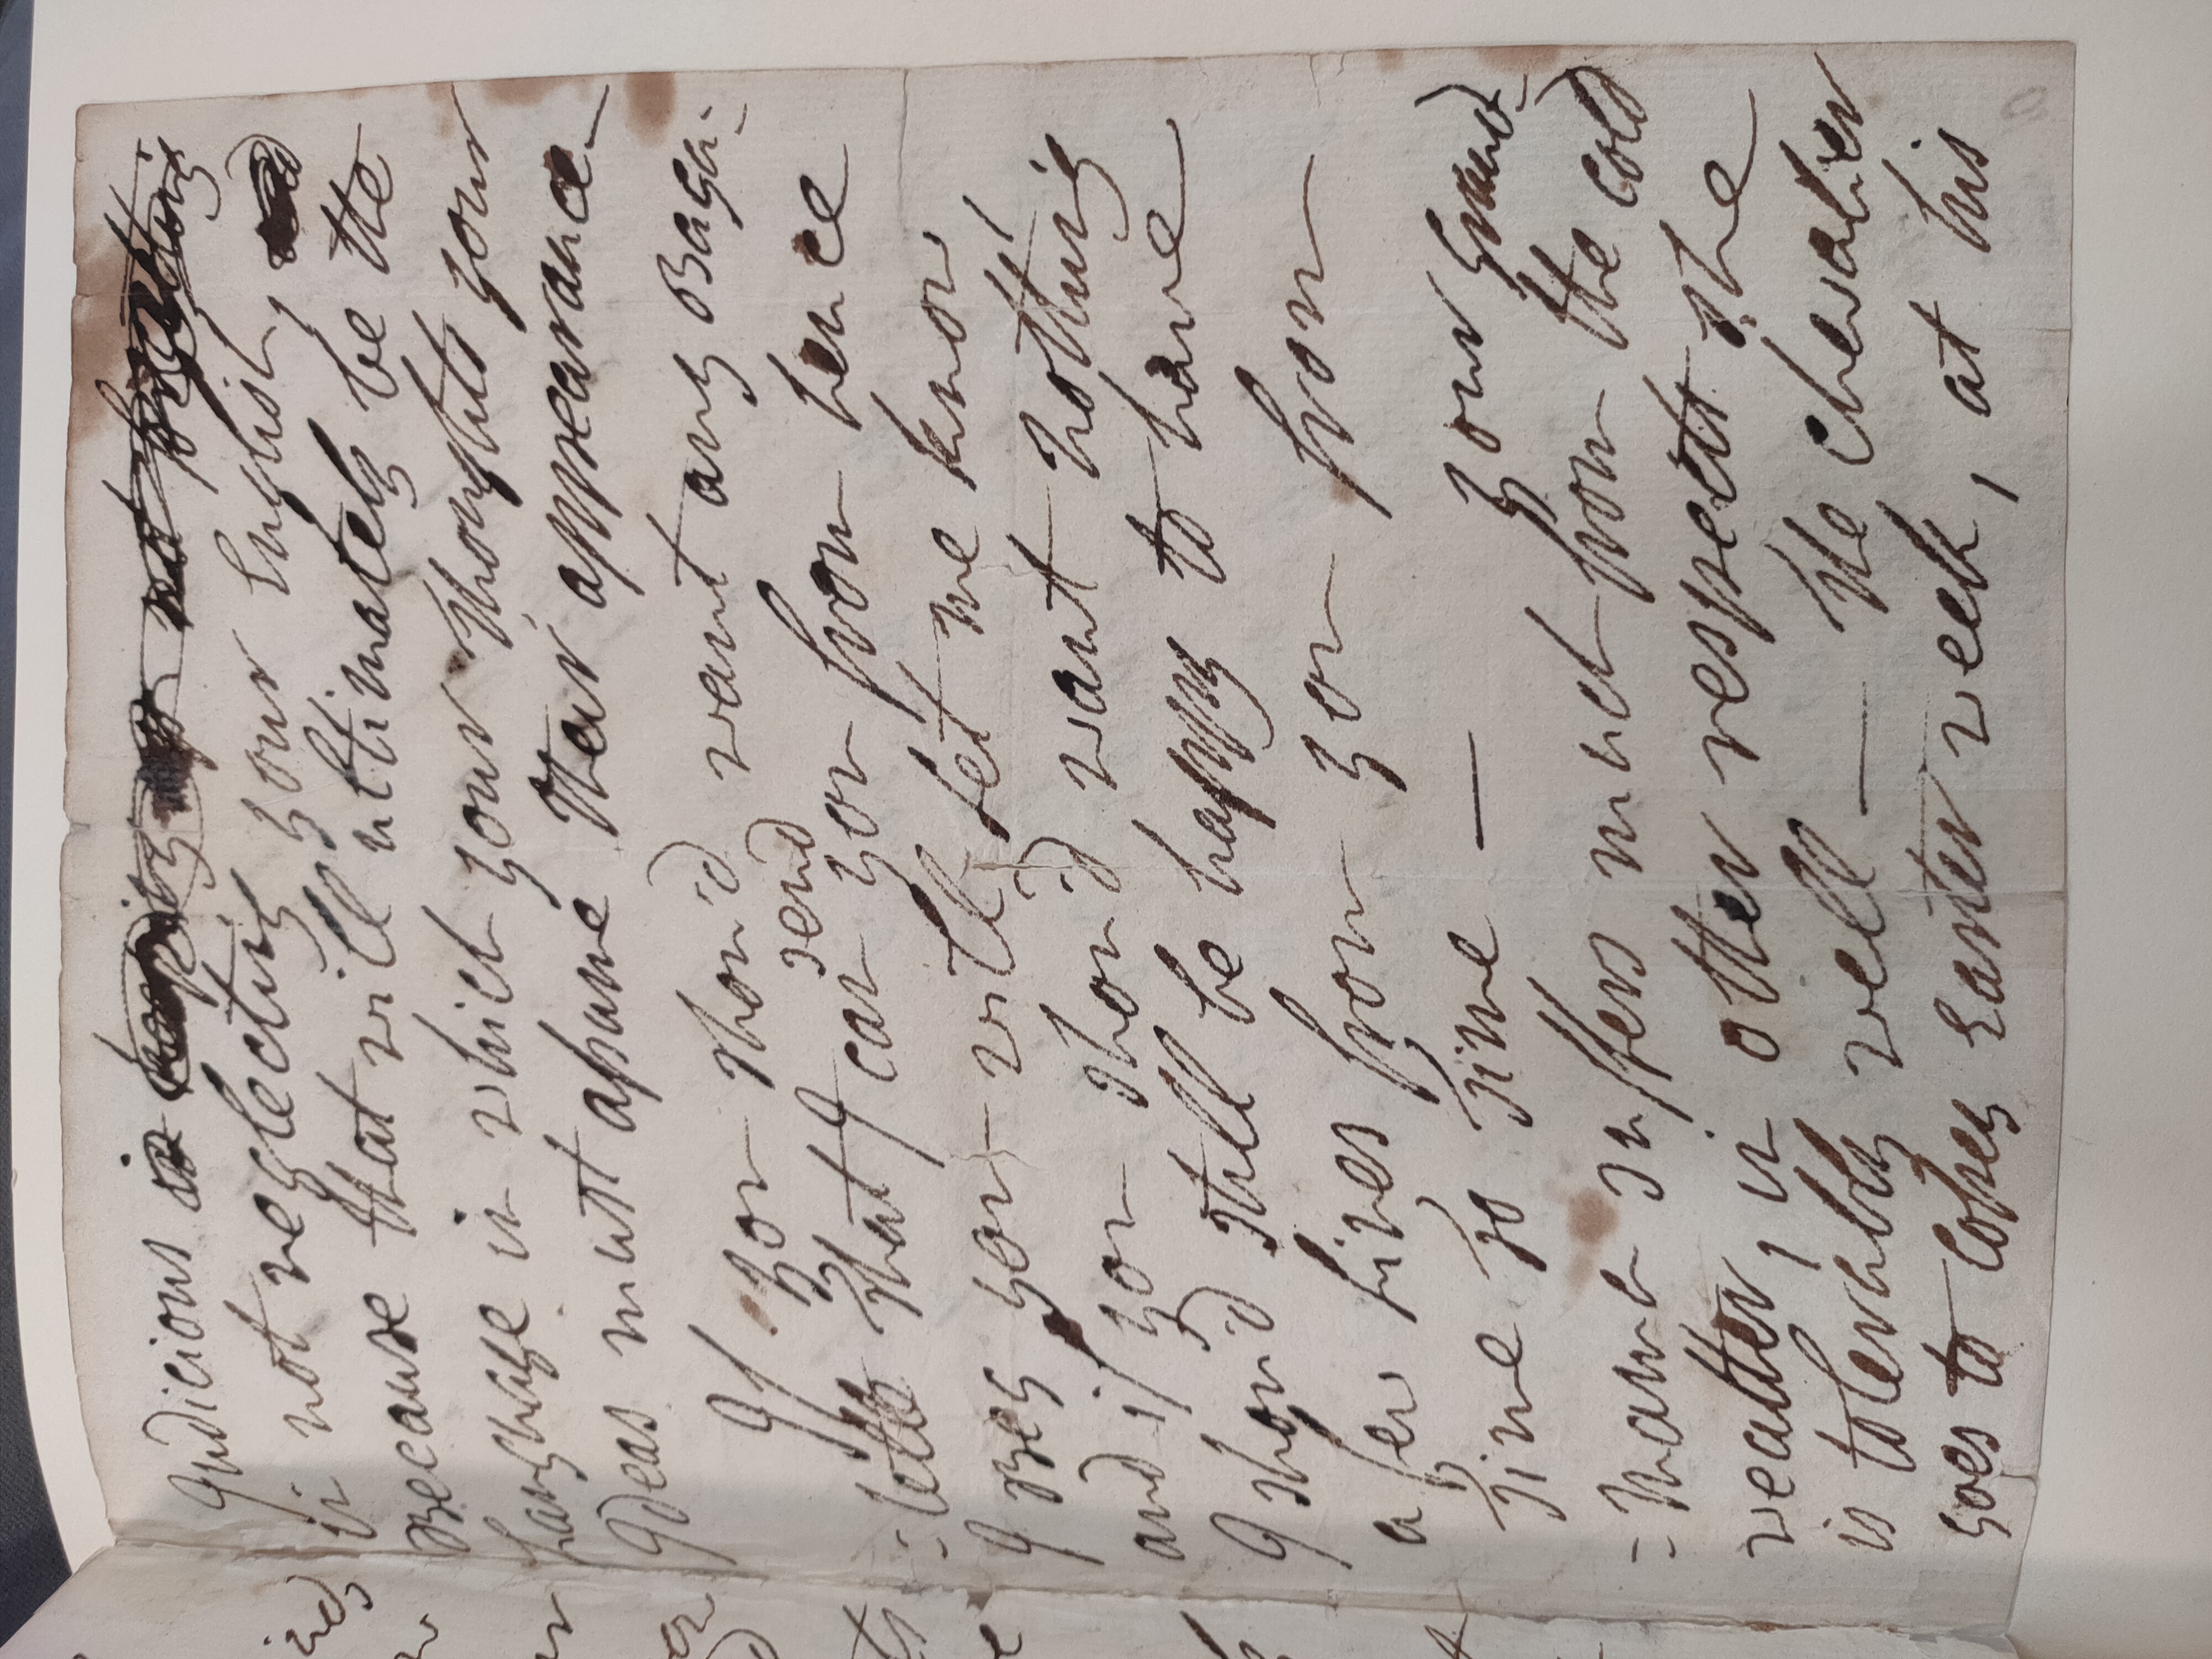 Judicious in keeping up not forgetting
is not neglecting your English,
Because that will ultimately be the
language in which your Thoughts your
Ideas must assume their appearance
If you shou'd want any Baga:
:telle that I can send you from hence
I Beg you will let me know,
and if you shou'd want nothing
I shou'd still be happy to have
a few lines from you from
Time to Time — your Grand
:Mama suffers much from the cold
weather, in other respects she
is tolerably well — the chevalier
goes to Cosey Easter week, at his